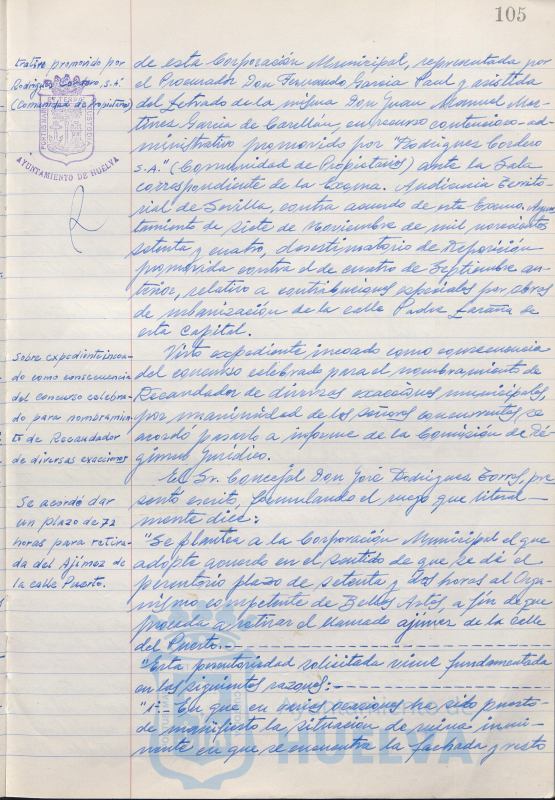 105
trativo promovido por
Rodríguez Cordero, S.A.
(Comunidad de Propietarios)
AYUNTAMIENTO DE HUELVA
de esta Corporación Municipal, representada por
el Procurador Don Fernando García Paul y asistida
del Letrado de la misma Don Juan Manuel Mar-
tínez García de Carellán, en recurso contencioso-ad-
ministrativo promovido por "Rodríguez Cordero
S.A." (Comunidad de Propietarios) ante la Sala
correspondiente de la Excma. Audiencia Territo-
rial de Sevilla, contra acuerdo de este Excmo. Ayun-
tamiento de siete de Noviembre de mil novecientos
setenta y cuatro, desestimatorio de Reposición
promovida contra el de cuatro de Septiembre an-
terior, relativo a contribuciones especiales por obras
de urbanización de la calle Padre Laraña de
esta capital.
Sobre expediente incoa-
do como consecuencia
del concurso celebra-
do para nombramien-
to de Recaudador
de diversas exacciones
Visto expediente incoado como consecuencia
del concurso celebrado para el nombramiento de
Recaudador de diversas exacciones municipales,
por unanimidad de los señores concurrentes, se
acordó pasarlo a informe de la Comisión de Ré-
gimen Jurídico.
Se acordó dar
un plazo de 72
horas para retira-
da del Ajimez de
la calle Puerto.
El Sr. Concejal Don José Rodríguez Torres, pre
sentó escrito, formulando el ruego que literal-
mente dice:
"Se plantea a la Corporación Municipal el que
adopte acuerdo en el sentido de que se dá el
perentorio plazo de setenta y dos horas al Orga-
nismo competente de Bellas Artes, a fin de que
proceda a retirar el llamado ajimez de la calle
del Puerto.-
"Esta perentoriedad solicitada viene fundamentada
en las siguientes razones:-
"1º- En que en varias ocasiones ha sido puesto
de manifiesto la situación de ruina inmi-
nente en que se encuentra la fachada y resto
HUELVA